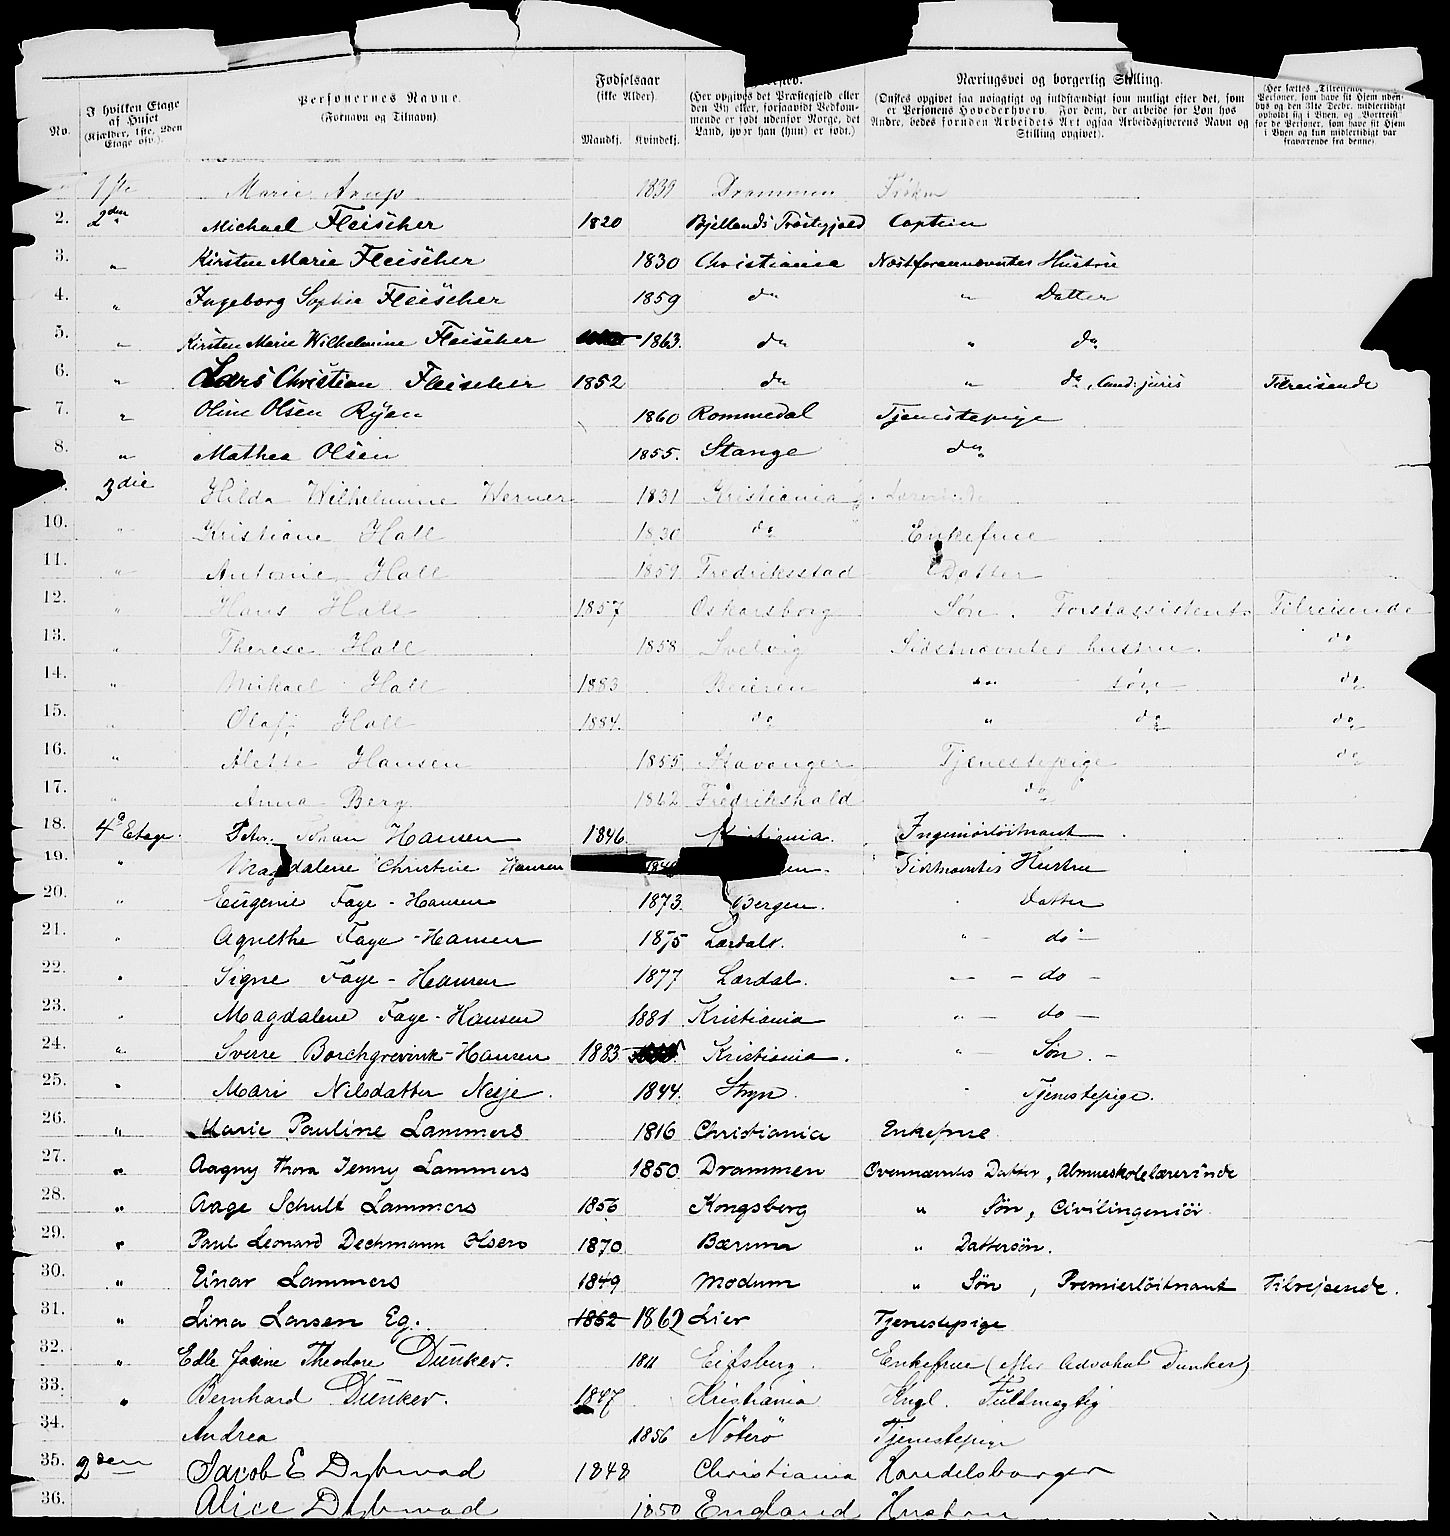 No. I hvilken Etage af Huset (Kjælder, 1ste, 2den Etage osv.). Personernes Navne. (Fornavn og Tilnavn) Fødselsaar (ikke Alder). Mandkj. Kvindekj. (Her opgives det Præstegjeld eller den By eller, forsaavidt Vedkommende er født udenfor Norge, det Land, hvor han (hun) er født.) Næringsvei og borgerlig Stilling. (Ønskes opgivet saa nøiagtigt og fuldstændigt som muligt efter det, som er Personens Hovederhverv. For dem, der arbeide for Løn hos Andre, bedes foruden Arbeidets Art ogsaa Arbeidsgiverens Navn og Stilling opgivet). (Her sættes „Tilreisende" Personer, som have sit Hjem udenbys og den 31te Decbr. midlertidigt opholdt sig i Byen, og „Bortreist" for de Personer, som have sit Hjem i Byen og kun midlertidigt var fraværende fra denne)
1ste Marie Arup 1839 Drammen Frøken
2. 2den Michael Fleischer 1820 Bjellands Præstegjæld Captein
3. " Kirsten Marie Fleischer 1830 Christiania Næstforannævntes Hustru
4. " Ingeborg Sophie Fleischer 1859 do " Datter
5. " Kirsten Marie Wilhelmine Fleischer 1863. do " do
6. " Lars Christian Fleischer 1852 do " do, Cand: juris Tilreisende
7. " Oline Olsen Ryen 1860 Rommedal Tjenestepige
8. " Mathea Olsen 1855. Stange do
3die Hilda Wilhelmine Werner 1831 Kristiania
10. " Kristiane Hall 1830 do Enkefrue
11. " Antonie Hall 1859 Fredriksstad Datter
12. " Hans Hall 1857 Oskarsborg Søn. Forstassistent Tilreisende
13. " Therese Hall 1858 Svelvig Sidstnævntes hustru. do
14. " Mikael Hall 1883 Beieren " søn do
15. " Olaf Hall 1884. do " do do
16. " Alette Hansen 1855 Stavanger Tjenestepige do
17. " Anna Berg 1862 Fredrikshald do
18. 4de Etage. Peter Johan Hansen 1846 Kristiania. Ingeniørløitnant
19. " Magdalene Christine Hansen Sidstnævntes Hustru
20. " Eugenie Faye-Hansen 1873. Bergen. Datter
21. " Agnethe Faye-Hansen 1875 Lærdal. " - do -
22. " Signe Faye-Hansen 1877 Lærdal. - do -
23. " Magdalene Faye-Hansen 1881 Kristiania " - do -
24. " Sverre Borchgrevink-Hansen 1883 Kristiania. " - Søn. -
25. " Mari Nilsdatter Nesje. 1844. Stryn. " Tjenestepige.
26. " Marie Pauline Lammers 1816 Christiania Enkefrue
27. " Aagny Thora Jenny Lammers 1850 Drammen Ovennævntes Datter, Almueskolelærerinde
28. " Aage Schult Lammers 1856 Kongsberg " Søn, Civilingeniør
29. " Paul Leonard Dechmann Olsen 1870 Bærum " Dattersøn.
30. " Einar Lammers 1849 Modum " Søn, Premierløitnant Tilrejsende.
31. " Lina Larsen Eg. 1852 1862 Lier Tjenestepige
32. " Edle Jasine Theodore Dunker. 1811 Eidsberg. Enkefrue (efter Advokat Dunker)
33. " Bernhard Dunker. 1847 Kristiania Kngl. Fuldmægtig
34. Andrea 1856 Nøterø Tjenestepige
35. 2den Jacob E Dybwad 1848 Christiania Handelsborger
36. Alice Dybwad 1850 England Hustru